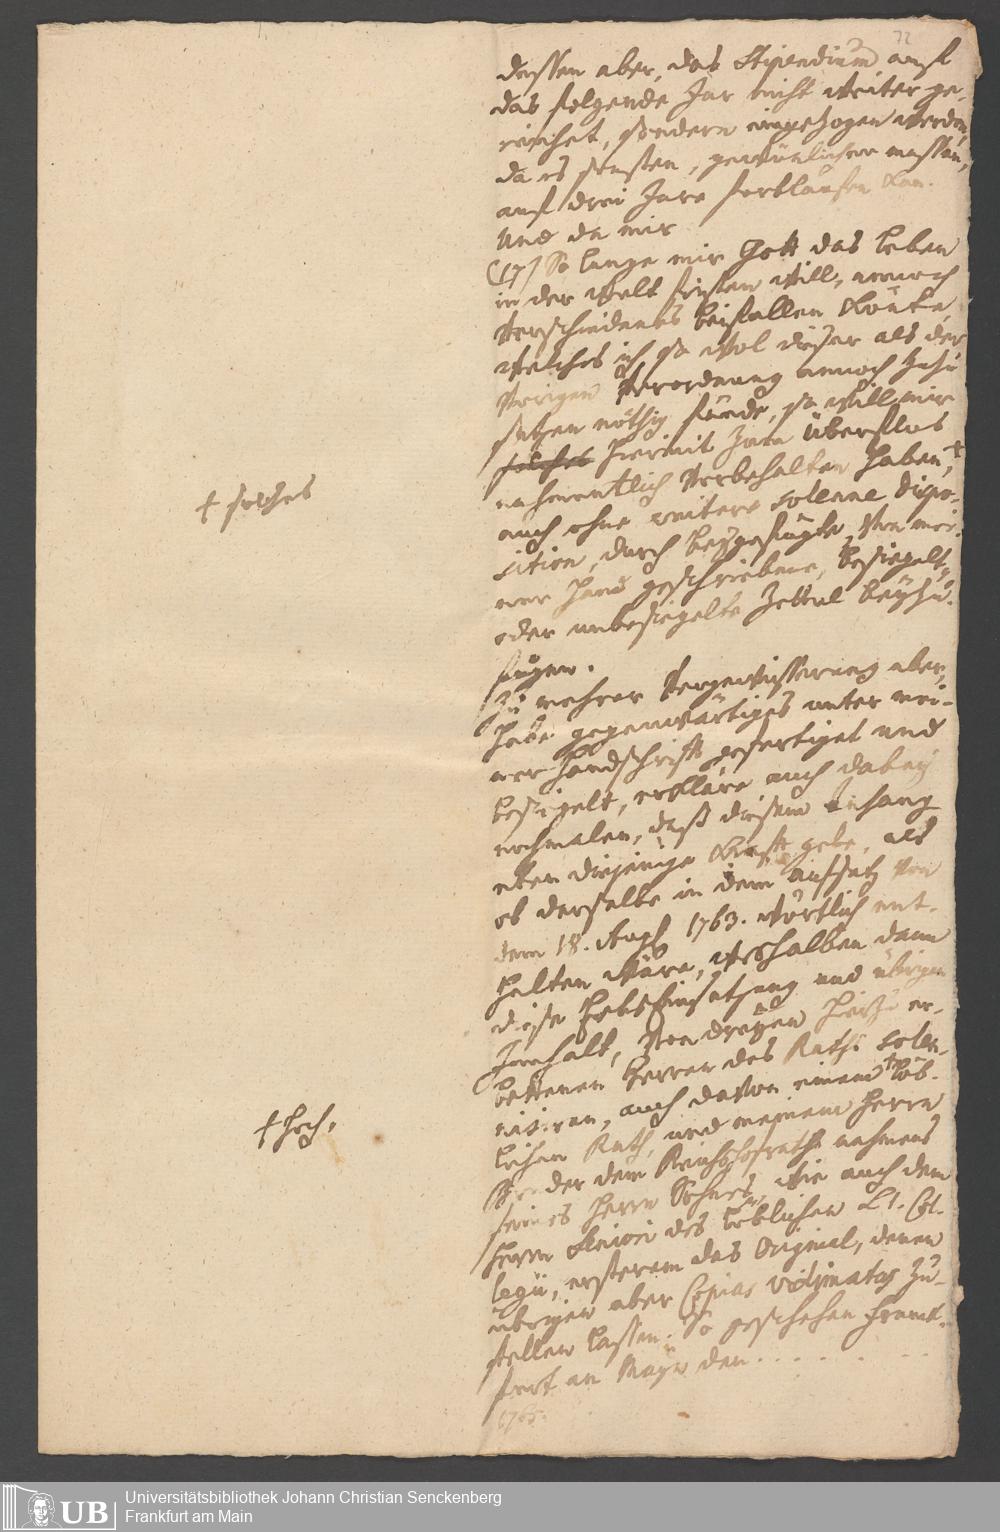 72
dessen aber, das Stipendium auf
das folgende Jar nicht weiter ge-
reichet, sondern eingezogen werden,
da es sonsten, gewönlicher massen,
auf drei Jare fortlaufen kan.
Und da mir
(17) So lange mir Gott das Leben
in der Welt fristen will, annoch
verschiedenes beifallen könte,
welches ich so wol dieser als der
vorigen Verordnung annoch zuzu
setzen nöthig fände, so will mir
solches hiermit zum Überflus
nahmentlich vorbehalten haben, +
+ solches
auch ohne weitere solenne dispo-
sition, durch beygefügte, von mei-
ner Hand geschriebene, besiegelt-
oder unbesiegelte Zettul beyzu-
fügen.
Zu mehrer Vergewisserung aber,
habe gegenwärtiges unter mei-
ner Handschrifft gefertiget und
besiegelt, erkläre auch dabey
nochmalen, daß diesem Anhang
eben diejenige Krafft gebe, als
ob derselbe in dem Aufsatz von
dem 18. Aug. 1763. wörtlich ent-
halten wäre, weshalben dann
diese
Innhalt, von dreyen hierzu er-
bettenen Herren des Raths solen-
nisiren, auch davon einem + löb-
+ Hoch,
lichen Rath, und meinem Herrn
Bruder dem Reichshofrath nahmens
seines Herrn Sohnes, wie auch dem
Herrn Seniori des löblichen
legii, ersterem das Original, denen
übrigen aber Copias vidimatas zu-
stellen lassen. So geschehen Franck-
furt am Mayn den . . . . . . .
1765.
UB
Universitätsbibliothek Johann Christian Senckenberg
Frankfurt am Main